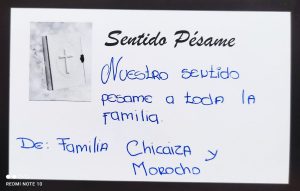 Sentido Pésame
Nuestro sentido
pesame a toda la
familia.
De: Familia Chicaiza y
Morocho
REDMI NOTE 10